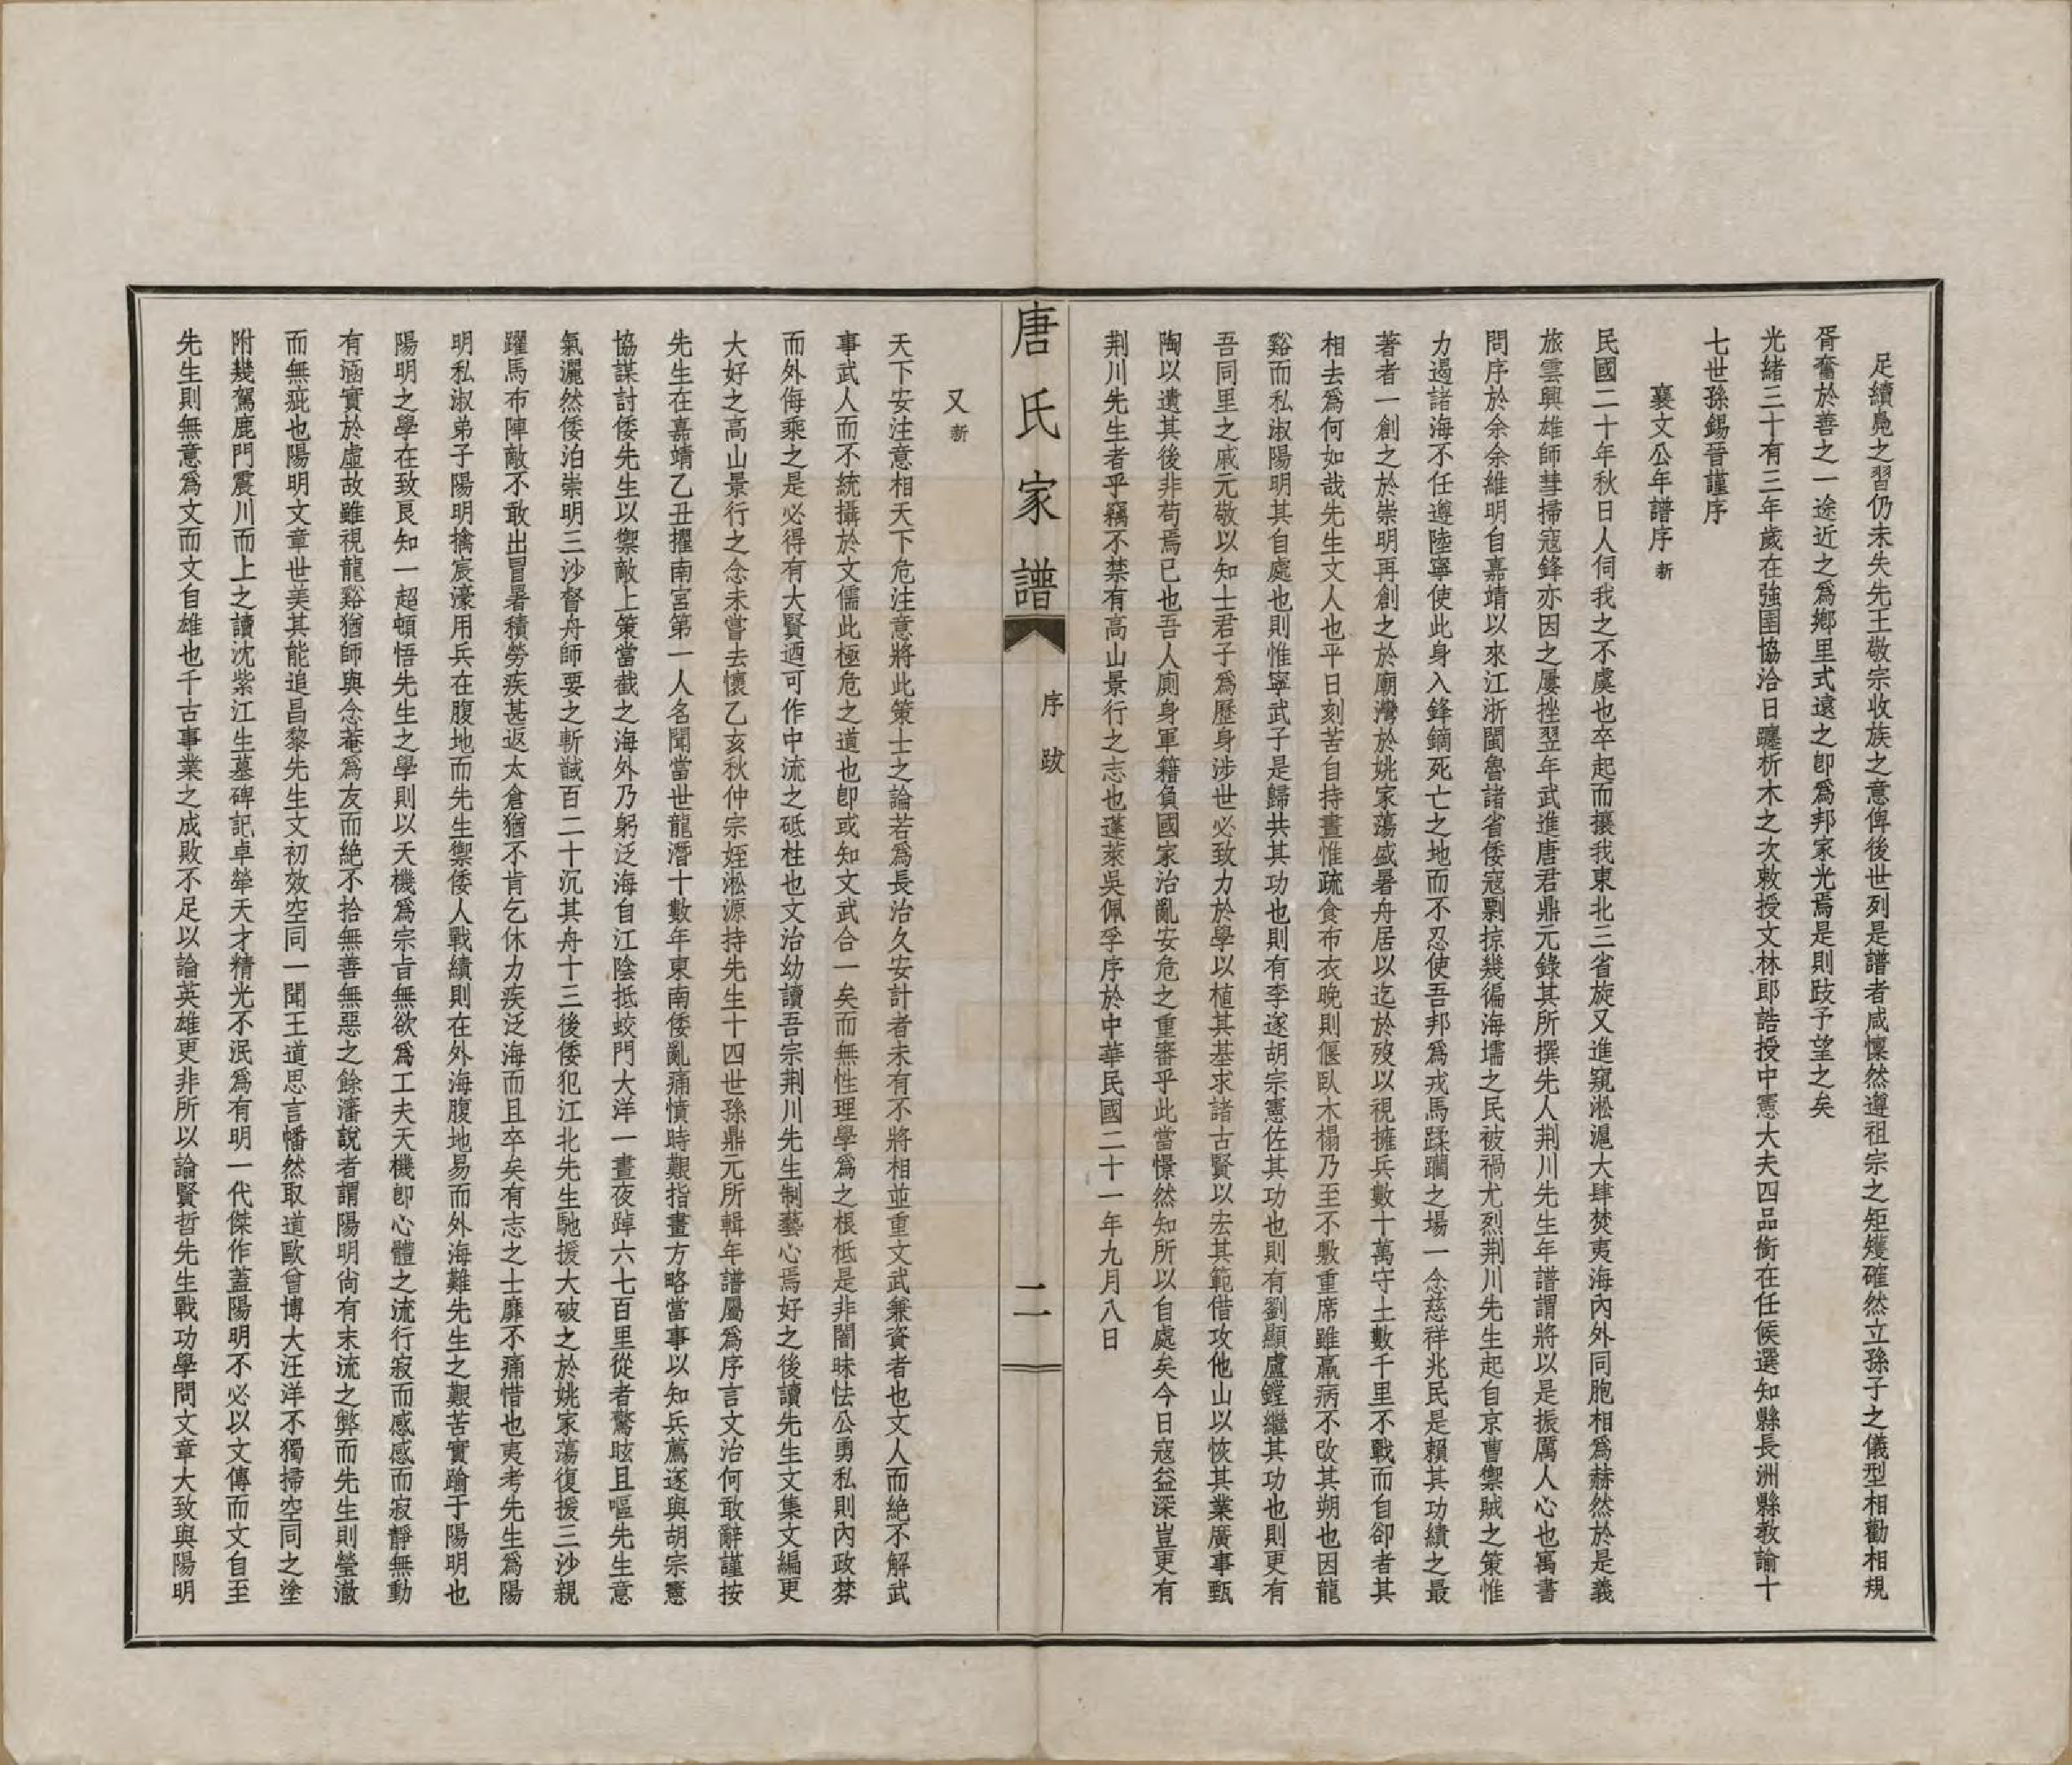 足續鳧之習仍未失先王敬宗收族之意俾後世列是譜者咸懍然遵祖宗之矩矱確然立孫子之儀型相勸相規
胥奮於善之一途近之爲鄉里式遠之卽爲邦家光焉是則跂予望之矣
光緒三十有三年歲在強圉協洽日躔析木之次敕授文林郎誥授中憲大夫四品銜在任候選知縣長洲縣敎諭十
七世孫錫晉謹序
襄文公年譜序 新
民國二十年秋日人伺我之不虞也卒起而攘我東北三省旋又進窺淞滬大肆焚夷海內外同胞相爲赫然於是義
旅雲興雄師彗掃寇鋒亦因之屢挫翌年武進唐君鼎元錄其所撰先人荆川先生年譜謂將以是振厲人心也寓書
問序於余余維明自嘉靖以來江浙閩魯諸省倭寇剽掠幾徧海壖之民被禍尤烈荆川先生起自京曹禦賊之策惟
力遏諸海不任遵陸寧使此身入鋒鏑死亡之地而不忍使吾邦爲戎馬蹂躝之場一念慈祥兆民是賴其功績之最
著者一創之於崇明再創之於廟灣於姚家蕩盛暑舟居以迄於歿以視擁兵數十萬守土數千里不戰而自卻者其
相去爲何如哉先生文人也平日刻苦自持晝惟疏食布衣晚則偃臥木榻乃至不敷重席雖羸病不改其朔也因龍
谿而私淑陽明其自處也則惟寧武子是歸共其功也則有李遂胡宗憲佐其功也則有劉顯盧鏜繼其功也則更有
吾同里之戚元敬以知士君子爲歷身涉世必致力於學以植其基求諸古賢以宏其範借攻他山以恢其業廣事甄
陶以遺其後非苟焉已也吾人廁身軍籍負國家治亂安危之重審乎此當憬然知所以自處矣今日寇益深豈更有
荆川先生者乎竊不禁有高山景行之志也蓬萊吳佩孚序於中華民國二十一年九月八日
唐氏家譜 序跋 二
又 新
天下安注意相天下危注意將此策士之論若爲長治久安計者未有不將相並重文武兼資者也文人而絶不解武
事武人而不統攝於文儒此極危之道也卽或知文武合一矣而無性理學爲之根柢是非闇昧怯公勇私則內政棼
而外侮乘之是必得有大賢迺可作中流之砥柱也文治幼讀吾宗荆川先生制藝心焉好之後讀先生文集文編更
大好之高山景行之念未嘗去懷乙亥秋仲宗姪淞源持先生十四世孫鼎元所輯年譜屬爲序言文治何敢辭謹按
先生在嘉靖乙丑擢南宮第一人名聞當世龍潛十數年東南倭亂痛憤時艱指畫方略當事以知兵薦遂與胡宗憲
協謀討倭先生以禦敵上策當截之海外乃躬泛海自江陰抵蛟門大洋一晝夜踔六七百里從者驚眩且嘔先生意
氣灑然倭泊崇明三沙督舟師要之斬馘百二十沉其舟十三後倭犯江北先生馳援大破之於姚家蕩復援三沙親
躍馬布陣敵不敢出冒暑積勞疾甚返太倉猶不肯乞休力疾泛海而且卒矣有志之士靡不痛惜也夷考先生爲陽
明私淑弟子陽明擒宸濠用兵在腹地而先生禦倭人戰績則在外海腹地易而外海難先生之艱苦實踰于陽明也
陽明之學在致良知一超頓悟先生之學則以天機爲宗旨無欲爲工夫天機卽心體之流行寂而感感而寂靜無動
有涵實於虛故雖視龍谿猶師與念菴爲友而絶不拾無善無惡之餘瀋說者謂陽明尙有末流之弊而先生則瑩澈
而無疵也陽明文章世美其能追昌黎先生文初效空同一聞王道思言幡然取道歐曾博大汪洋不獨掃空同之塗
附幾駕鹿門震川而上之讀沈紫江生墓碑記卓犖天才精光不泯爲有明一代傑作蓋陽明不必以文傳而文自至
先生則無意爲文而文自雄也千古事業之成敗不足以論英雄更非所以論賢哲先生戰功學問文章大致與陽明